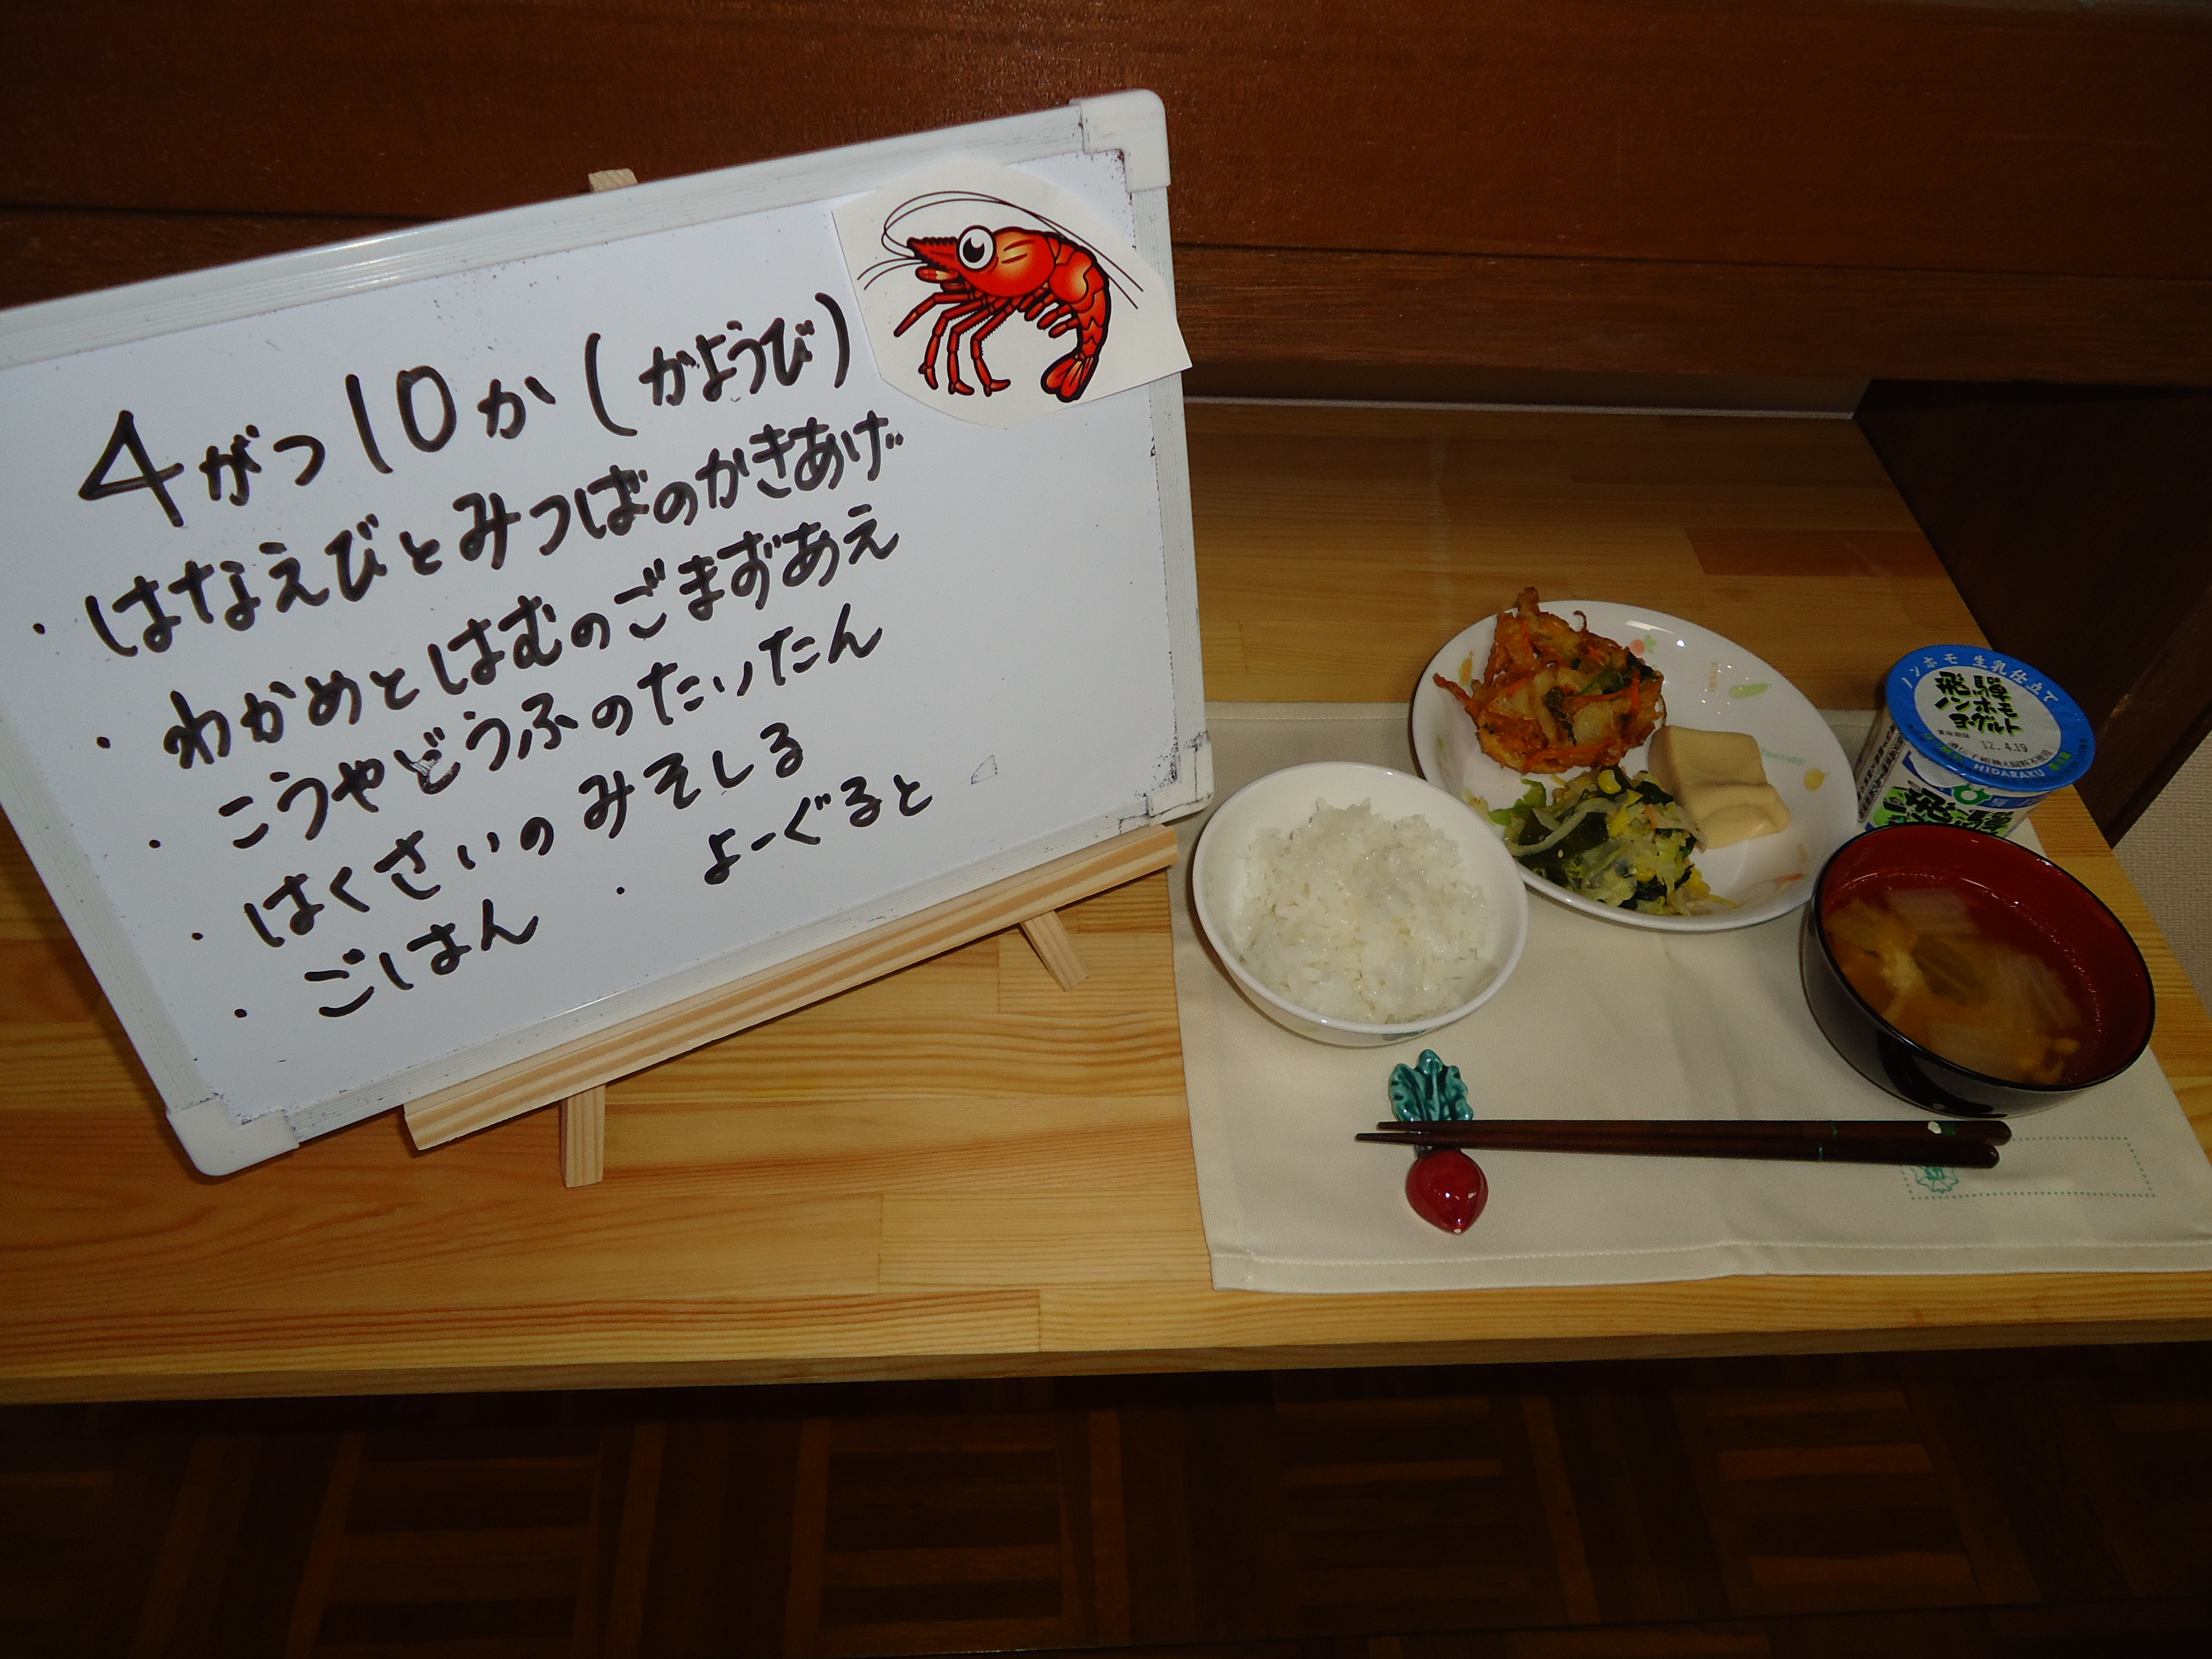 4がつ10か(かようび)
・はなえびとみつばのかきあげ
・わかめとはむのごまずあえ
・こうやどうふのたいたん
・はくさいのみそしる
・ごはん ・よーぐると
ノンホモ 生乳仕立て
飛騨
ノンホモ
ヨーグルト
12.4.19
HIDARAKU
飛騨